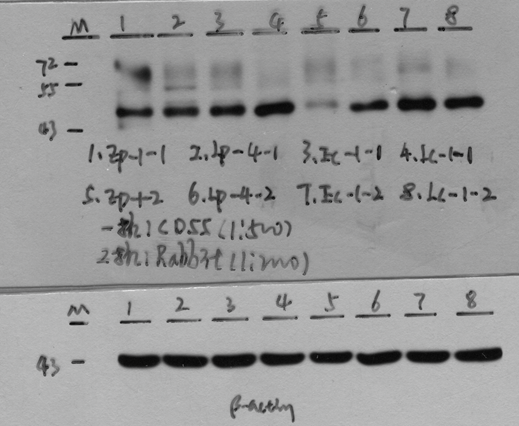 M 1 2 3 4 5 6 7 8
72
55
43
1. Zp-1-1 2. Lp-4-1 3. Ec-1-1 4. Lc-1-1
5. Zp-1-2 6. Lp-4-2 7. Ec-1-2 8. Lc-1-2
一抗: CD55 (1:500)
2抗: Rabbit (1:2000)
M 1 2 3 4 5 6 7 8
43
β-actin